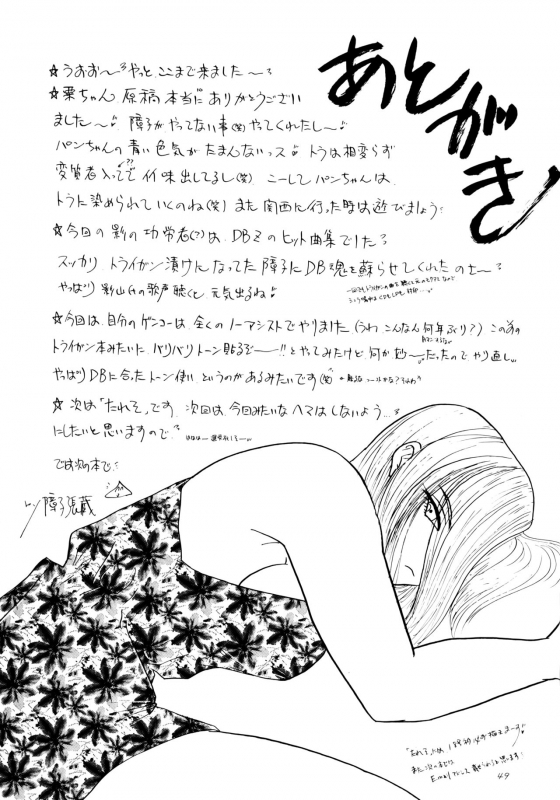 あとがき
☆うおお〜〜やっと、ここまで来ました〜
☆栗ちゃん 原稿 本当に ありがとうござい
ました〜♪ 障子が やってない事(笑) やってくれたし〜♪
パンちゃんの 青い色気が たまんないっス♪ トラは相変らず
変質者入ってて イイ味出してるし(笑) こーしてパンちゃんは、
トラに染められていくのね(笑) また 関西に行った時は遊びましょう
☆今回の影の功労者(?)は、DBZのヒット曲集でした
スッカリ、トライガン漬けになってた 障子に DB魂を蘇らせてくれたのさ〜
やっぱり 影山さんの歌声聴くと 元気出るね♪
☆今回は、自分のゲンコーは、全くのノーアシストでやりました(うわ こんなん何年ぶり?) この前の
トライガン本みたいに、バリバリトーン貼るぞ〜!!とやってみたけど 何か
だったので やり直し
やっぱり DBに合ったトーン使い というのがあるみたいです(笑)
☆次は「たれぞ」です 次回は、今回みたいな ヘマはしないよう...
にしたいと思いますので
では次の本で
障子張蔵
49